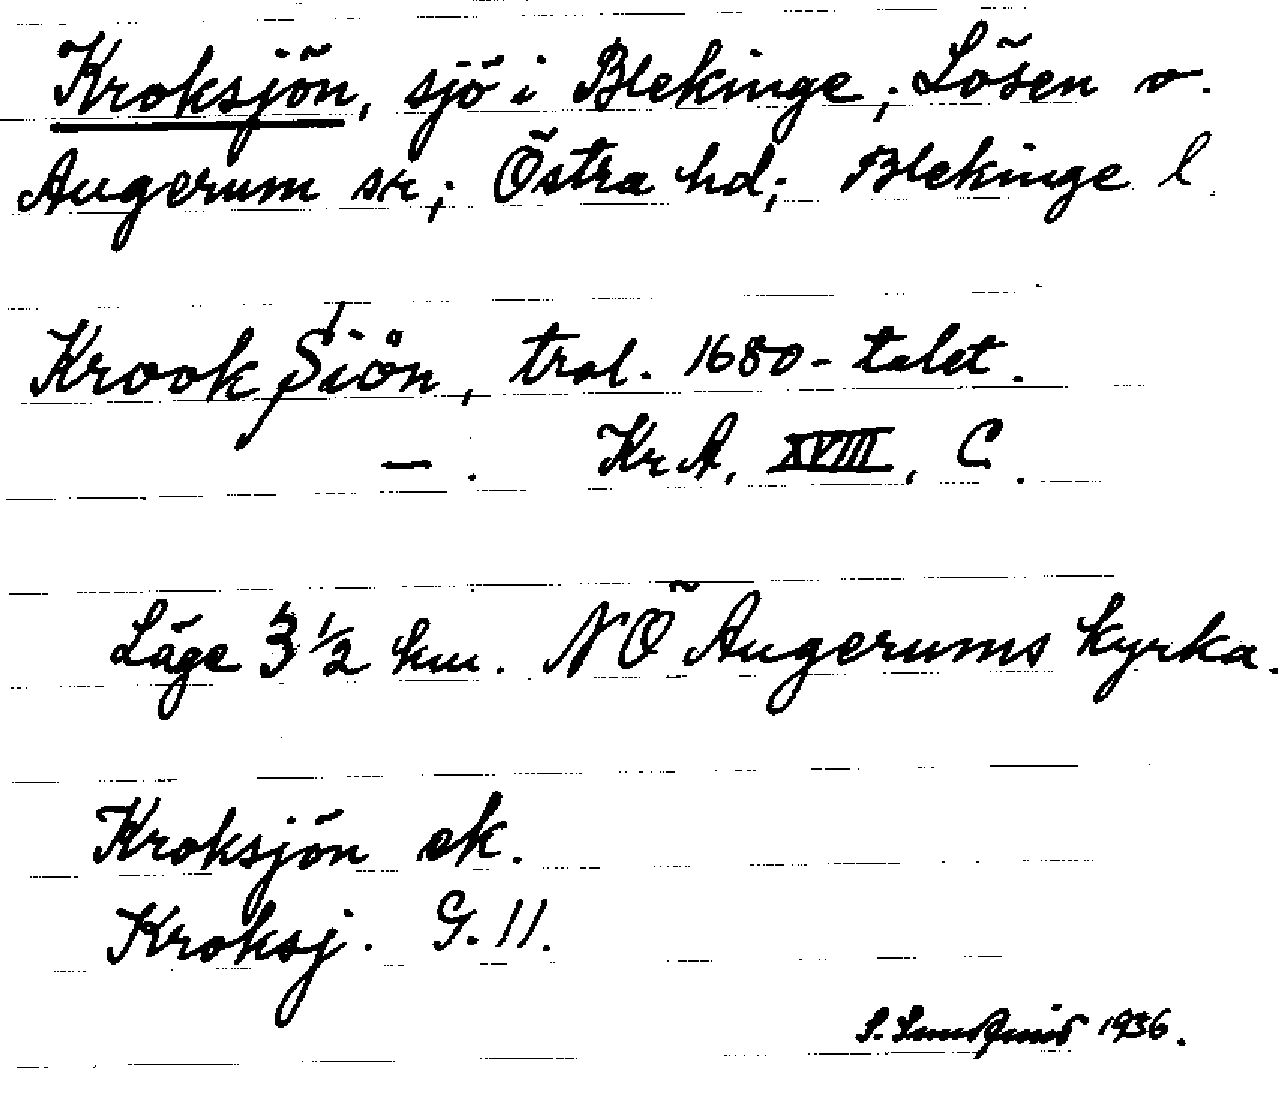 Kroksjön, sjö i Blekinge; Lösen o.
Augerum sr; Östra hd; Blekinge l.
Krook Siön, trol. 1680-talet.
—. KrA, XVIII, C.
Läge 3 1/2 km. NÖ Augerums kyrka.
Kroksjön ek.
Kroksj. G. 11.
S. 1936.